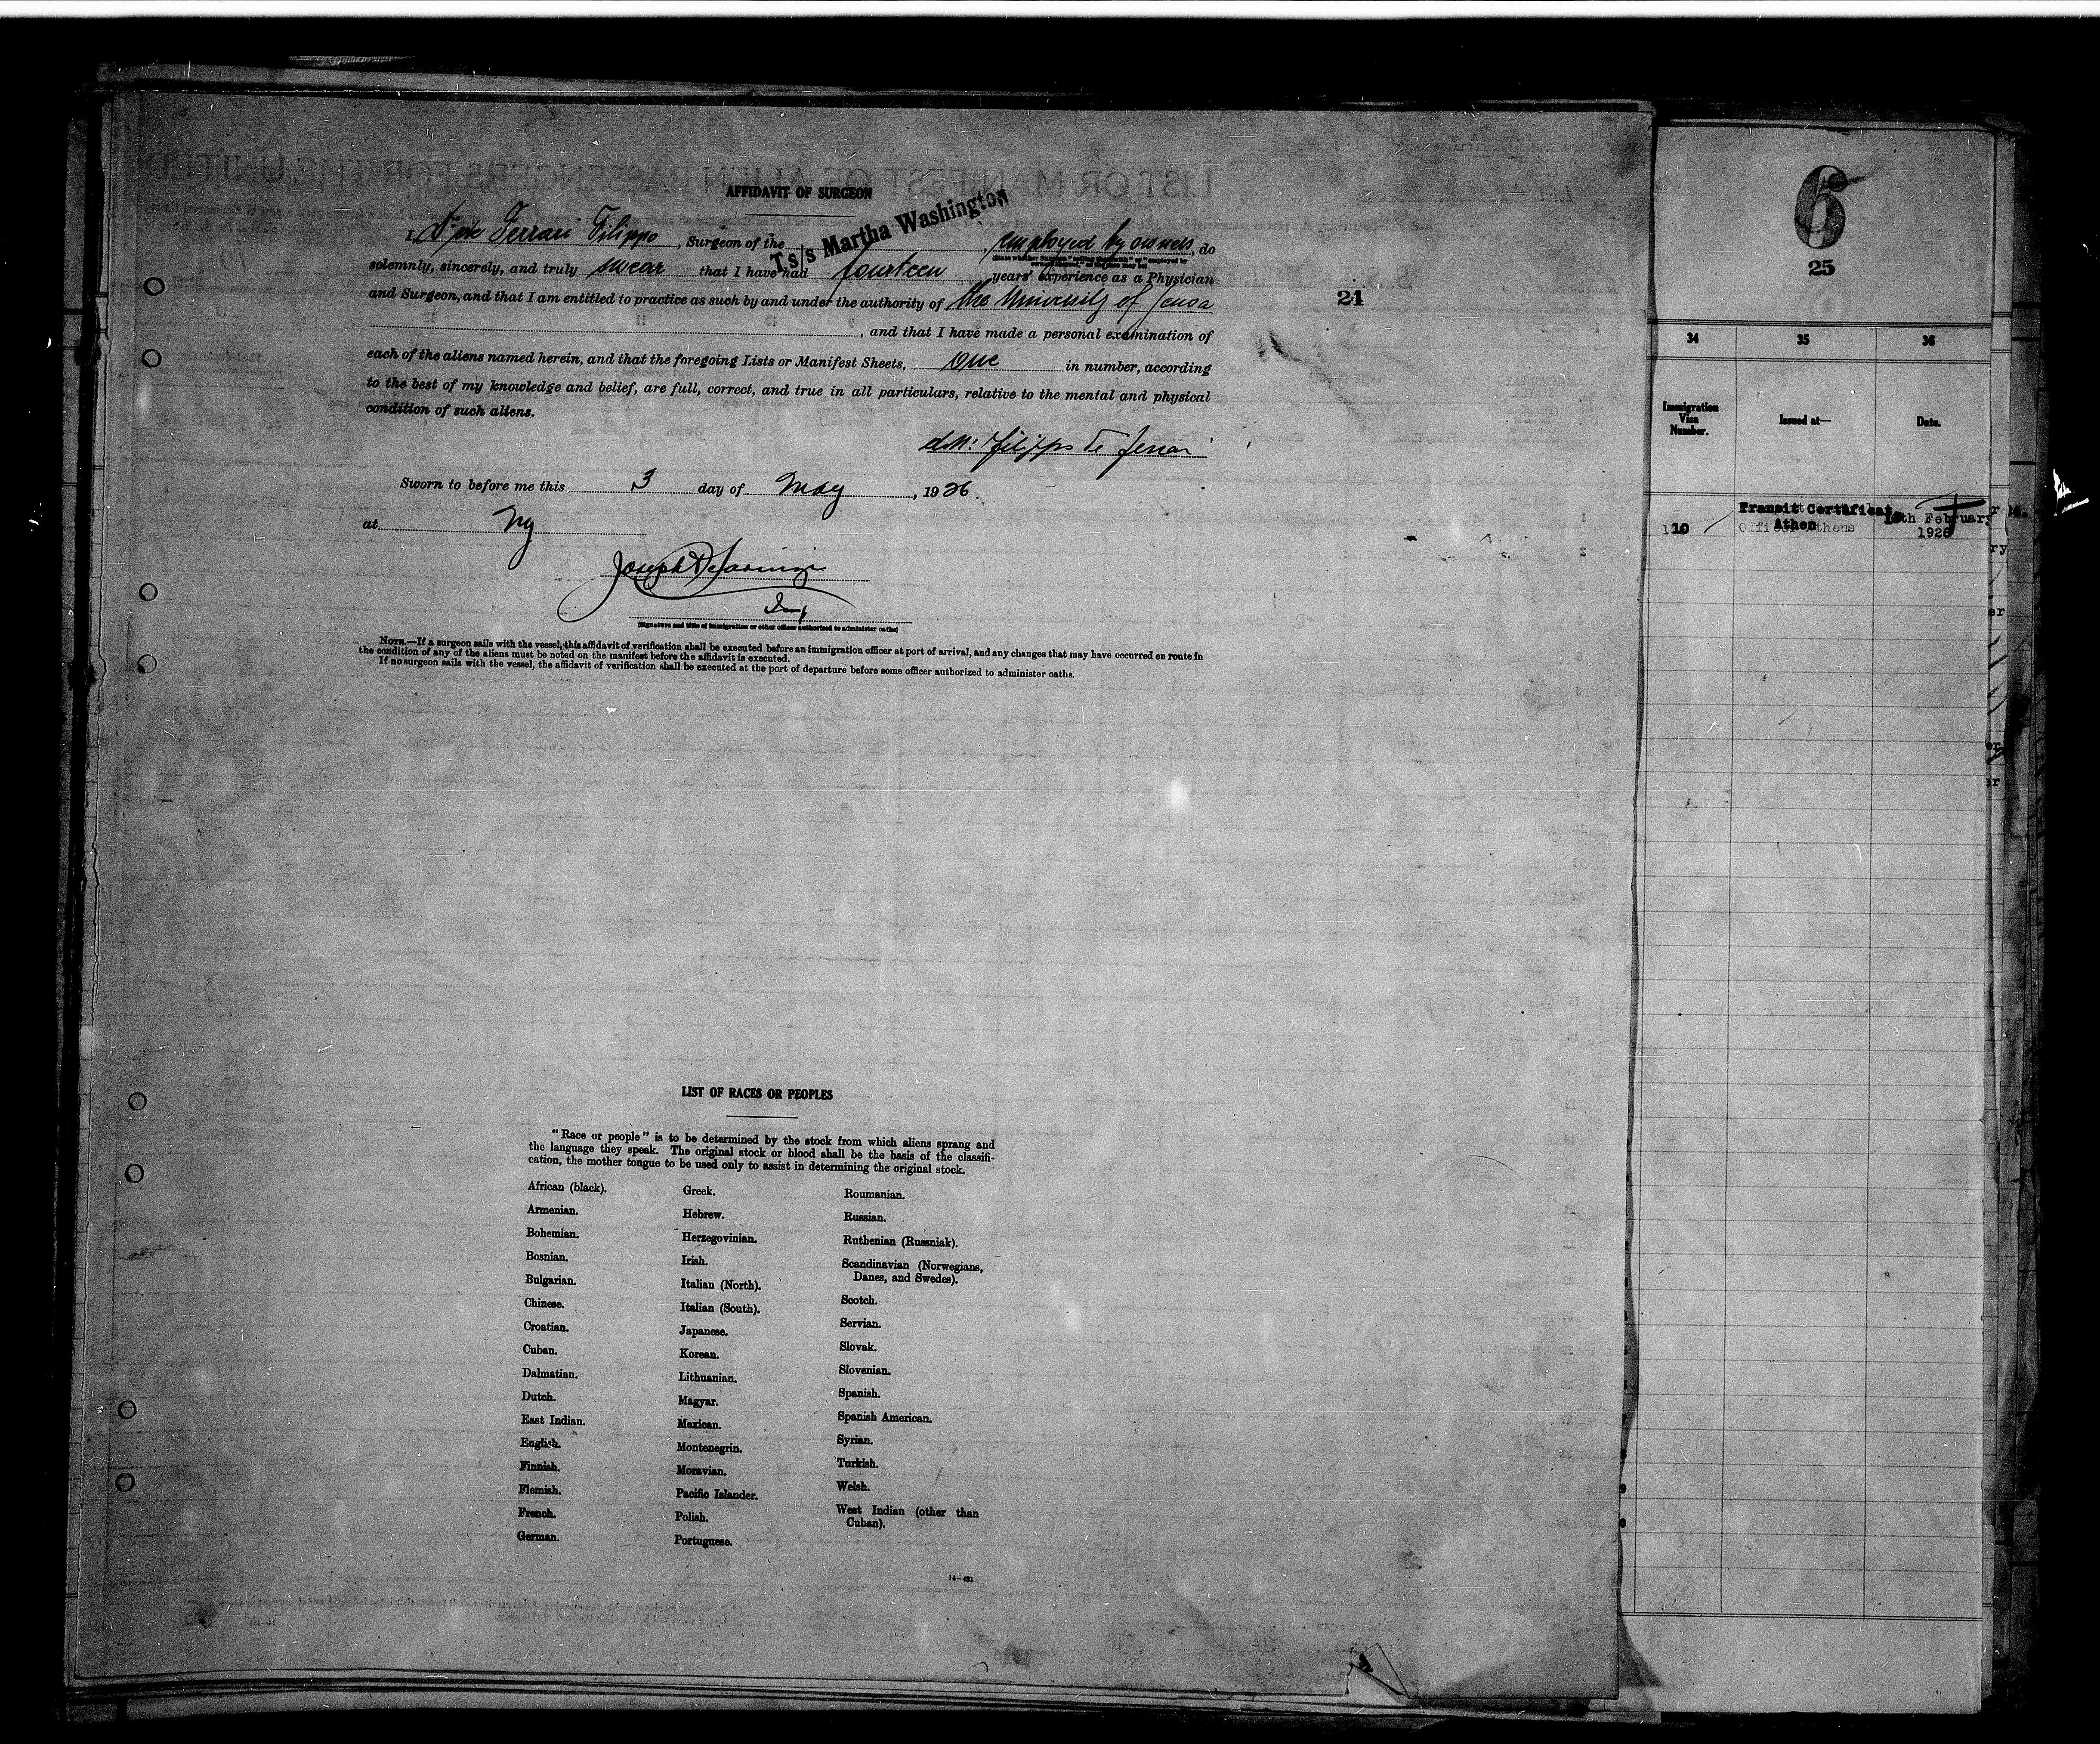 AFFIDAVIT OF SURGEON
I, Dr de Ferrari Filippo, Surgeon of the Ts/s Martha Washington, employed by owners, do
solemnly, sincerely, and truly swear that I have had fourteen years' experience as a Physician
and Surgeon, and that I am entitled to practice as such by and under the authority of the University of Genoa
, and that I have made a personal examination of
each of the aliens named herein, and that the foregoing Lists or Manifest Sheets, One in number, according
to the best of my knowledge and belief, are full, correct, and true in all particulars, relative to the mental and physical
condition of such aliens.
Filippo de Ferrari
Sworn to before me this 3 day of May, 1926.
at Ny
Joseph
Insp
(Signature and title of immigration or other officer authorized to administer oaths)
NOTE.—If a surgeon sails with the vessel, this affidavit of verification shall be executed before an immigration officer at port of arrival, and any changes that may have occurred en route in
the condition of any of the aliens must be noted on the manifest before the affidavit is executed.
If no surgeon sails with the vessel, the affidavit of verification shall be executed at the port of departure before some officer authorized to administer oaths.
LIST OF RACES OR PEOPLES
"Race or people" is to be determined by the stock from which aliens sprang and
the language they speak. The original stock or blood shall be the basis of the classifi-
cation, the mother tongue to be used only to assist in determining the original stock.
African (black).
Armenian.
Bohemian.
Bosnian.
Bulgarian.
Chinese.
Croatian.
Cuban.
Dalmatian.
Dutch.
East Indian.
English.
Finnish.
Flemish.
French.
German.
Greek.
Hebrew.
Herzegovinian.
Irish.
Italian (North).
Italian (South).
Japanese.
Korean.
Lithuanian.
Magyar.
Mexican.
Montenegrin.
Moravian.
Pacific Islander.
Polish.
Portuguese.
Roumanian.
Russian.
Ruthenian (Russniak).
Scandinavian (Norwegians,
Danes, and Swedes).
Scotch.
Servian.
Slovak.
Slovenian.
Spanish.
Spanish American.
Syrian.
Turkish.
Welsh.
West Indian (other than
Cuban).
14—421
24
6
25
34 35 36
Immigration
Visa
Number.
Issued at—
Date.
Transit Certificate
10 Athens
February
1926